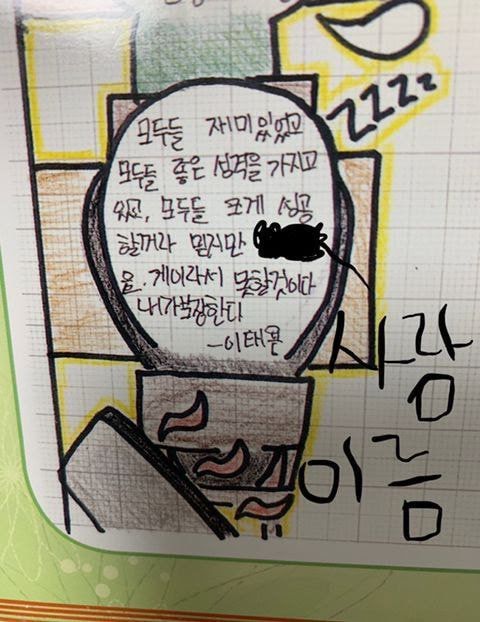 ZZZZ
모두들 재미있었고
모두들 좋은 성격을 가지고
있고, 모두들 크게 성공
할꺼라 믿지만
은. 게이라서 못할것이다
내가 보장한다
-이태을
사람
이름